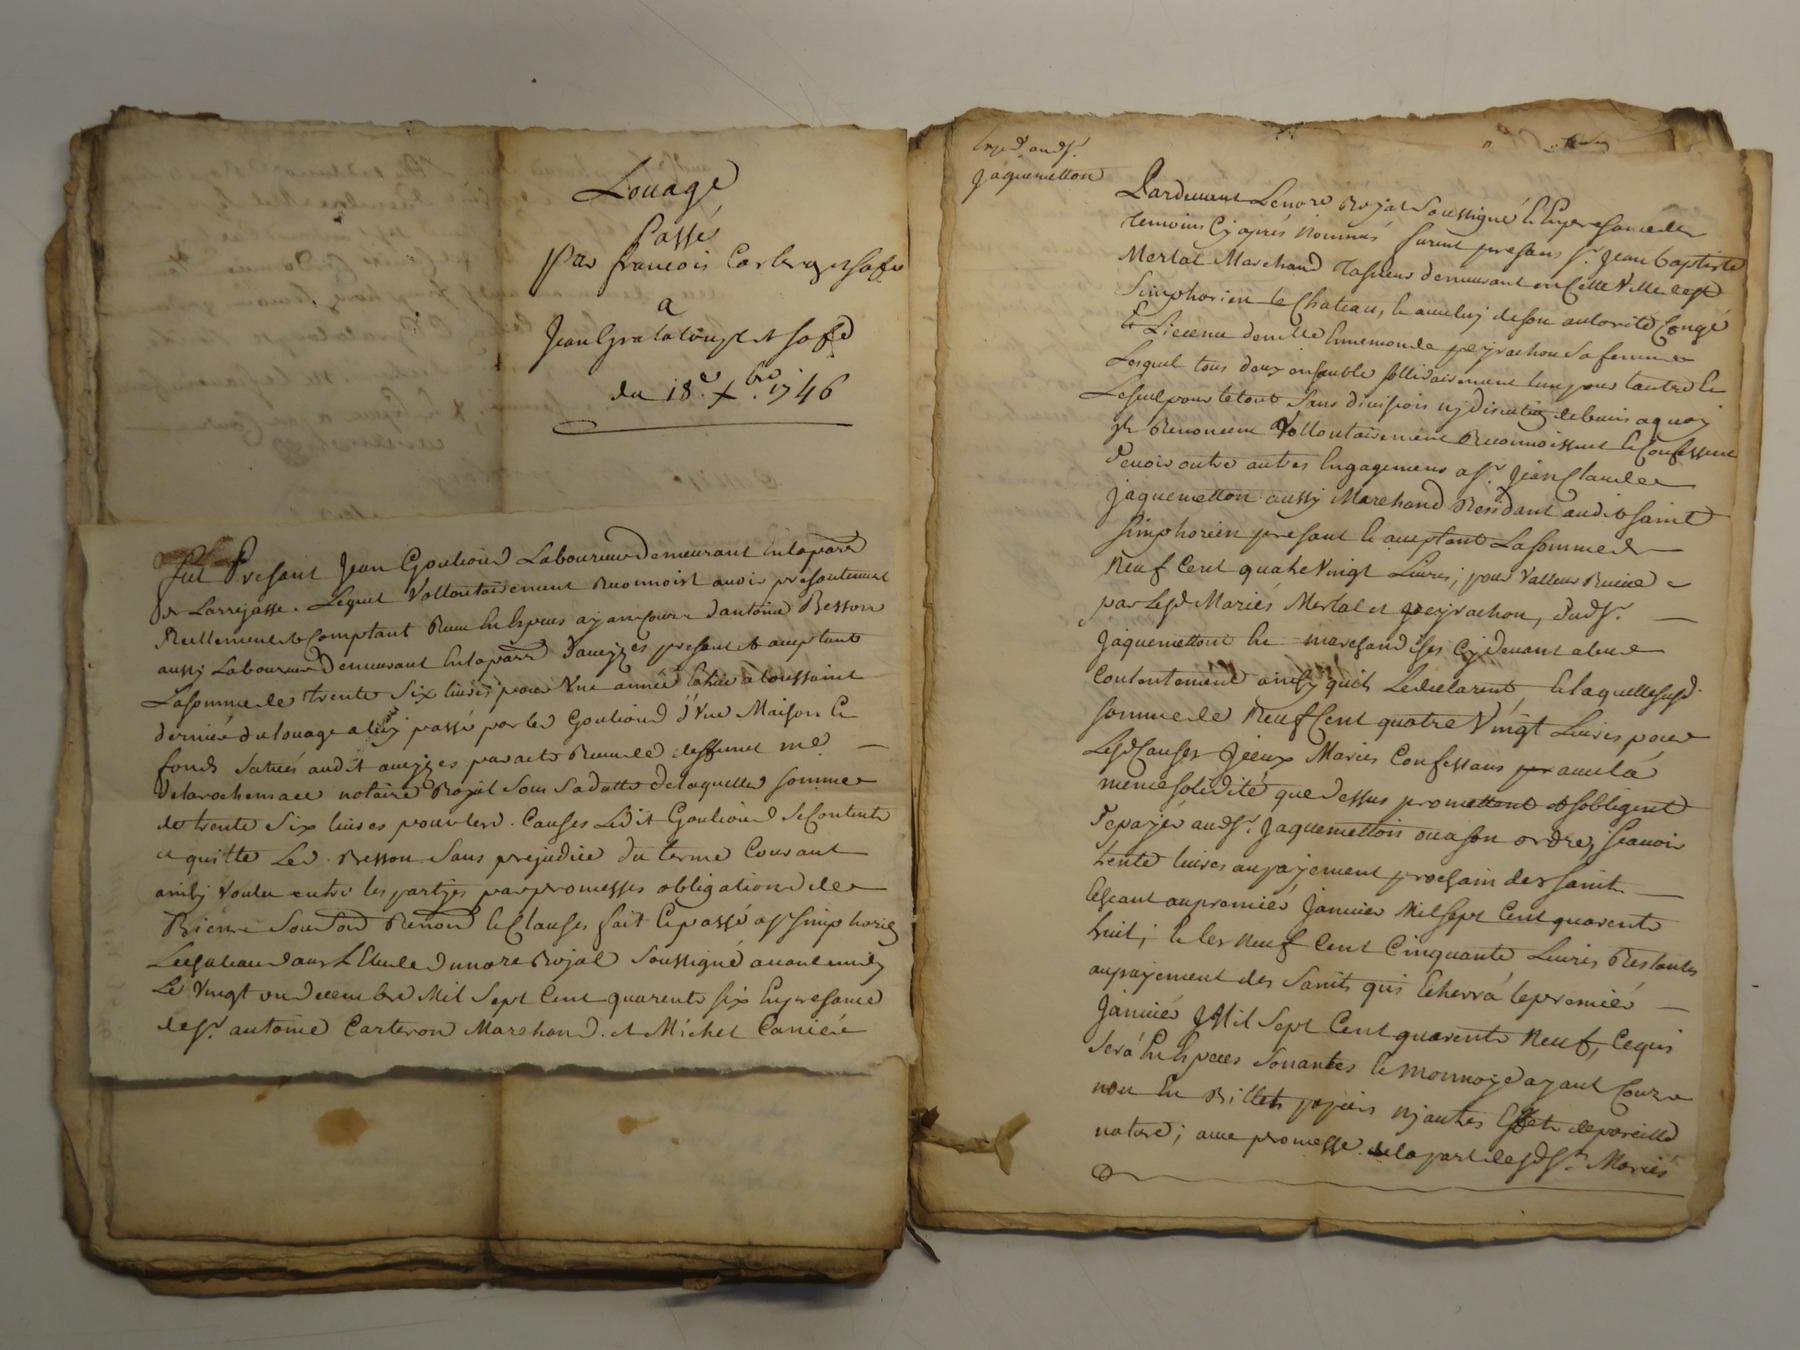 Louage
Passé
Par francois Carteron et sa fe
a
Jean Grataloup et sa fe
du 18e Xbre 1746
fut Present Jean Goutiond Laboureur demeurant en la parr
de Larrajasse. Lequel Vollontairement Reconnoist avoir presentement
Reellement & Comptant Receu En Especes ayan cours d'antoine Besson
aussy Laboureur demeurant En la parr d'aveizes present & aceptant
La somme de trente six livres pour Une année Echue a toussaint
derniere du louage a luy passé par led Goutiond d'Une Maison Et
fonds situés audit aveizes par acte Receu de deffunct me
Delarochemace notaire Royal Sous sa datte de laquelle somme
de trente Six livres pour lesd. Causes Ledit Goutiond se Contente
et quitte Led. Besson Sans prejudice du terme Courant
ainsy Voulu entre les partyes par promesses obligation de
Biens Soub Renon & Clauses fait & passé a St Simphorien
Le Chateau dans L'Etude du nore Royal Soussigné avant midy
Le Vingt un decembre Mil Sept Cent quarente six En presence
de sr. antoine Carteron Marchand. et Michel Caniere
Exp.d aud sr.
Jaquemetton
Pardevant Le nore Royal Soussigné & En presence des
temoins Cy aprés Nommés furent presens sr. Jean baptiste
Merlat Marchand demeurant en Cette Ville de st
Simphorien le Chateau, & avec luy de son autorité Congé
& Licence demlle Ennemonde peyrachon sa femme
Lesquel tous deux ensemble sollidairement l'un pour l'autre &
Le seul pour le tout Sans division ny discution de biens a quoy
ils Renoncent Vollontairement Reconnoissent & Confessent
Devoir outre autres Engagemens a sr. Jean Claude
Jaquemetton aussy Marchand Residant audit saint
Simphorien present & aceptant La somme de
Neuf Cent quatre Vingt Livres; pour Valleur Receue
par Lesd Mariés Merlat et peyrachon, dud sr.
Jaquemetton En marchandises Cy devant a leur
Contentement ainsy quils Le declarent & laquelle susd.
somme de Neuf Cent quatre Vingt Livres pour
Lesd Causes Iceux Mariés Confessans avec la
meme solidité que dessus promettent & sobligent
De payer aud sr. Jaquemetton ou a son ordre, scavoir
trente livres au payement prochain des saint
Echeant au premier Janvier Mil sept Cent quarente
huit; & les Neuf Cent Cinquante Livres Restantes
au payement des Saints qui Echerra le premier
Janvier Mil Sept Cent quarente Neuf, Ce qui
sera En Especes Sonantes & Monnoye ayant Cours
non En Billets papiers ny autres Effets de pareille
nature; avec promesse de la part desd srs Mariés